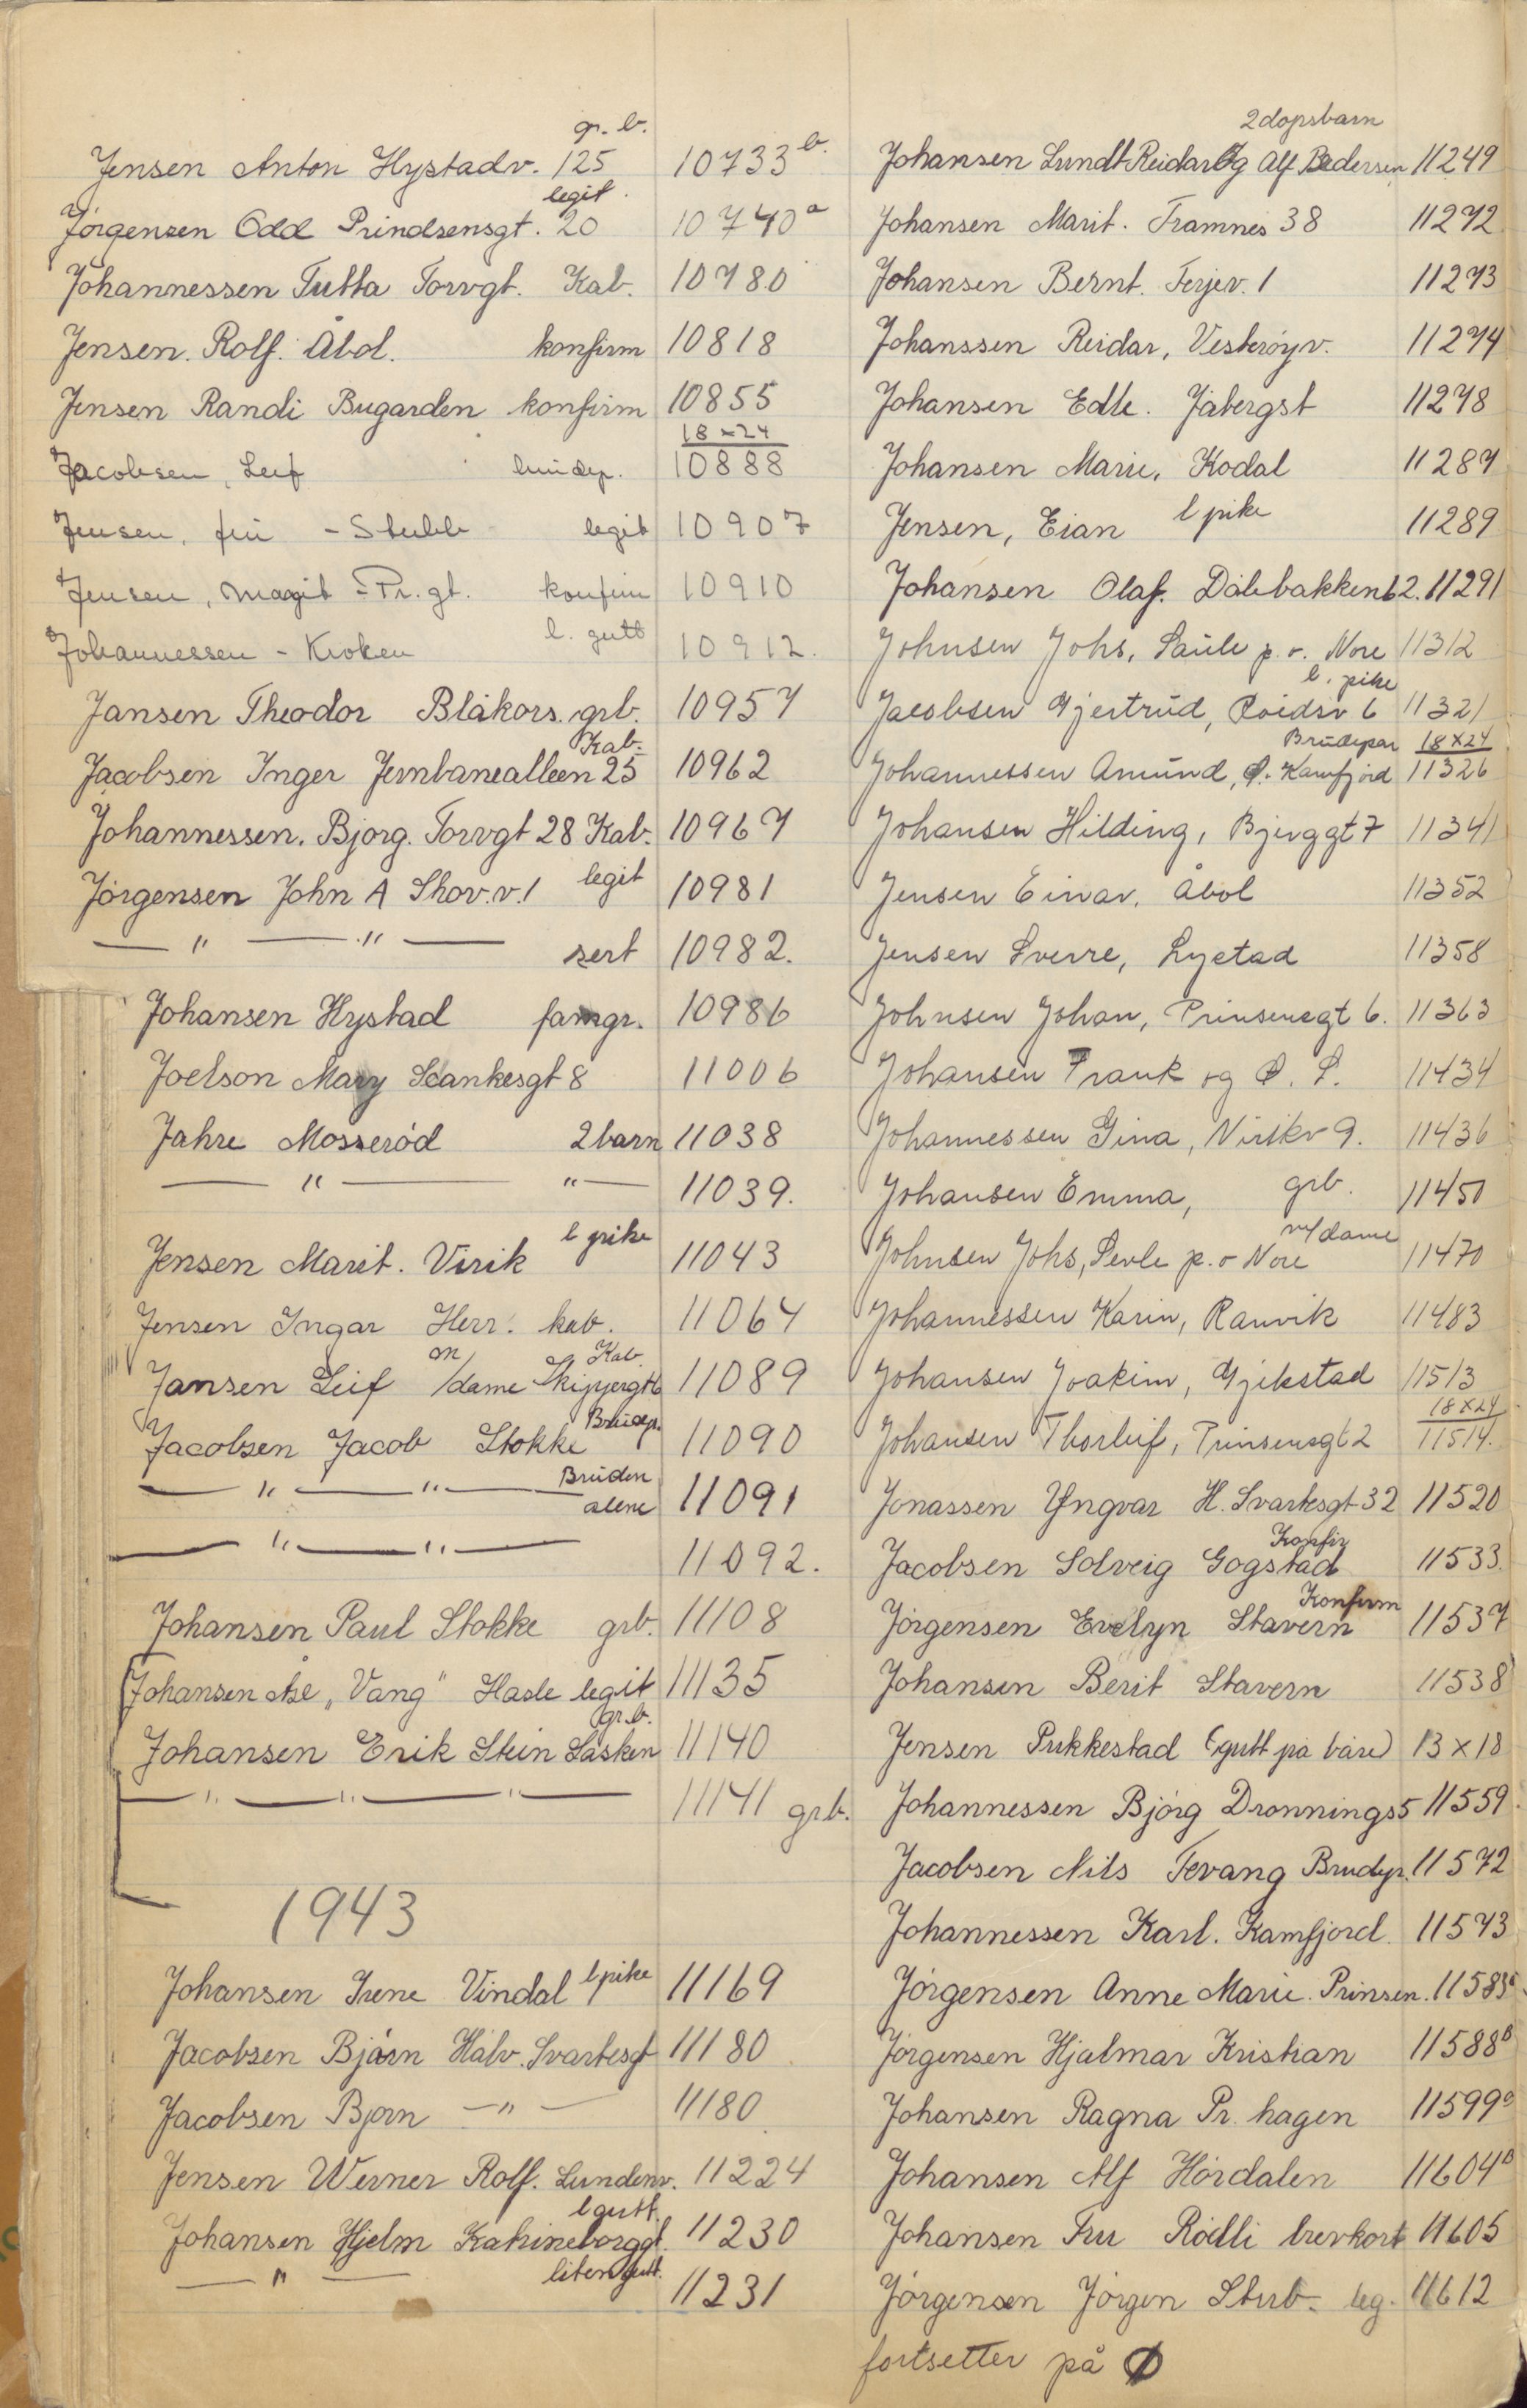 gr. b.
Jensen Anton Hystadv. 125 10733 b.
legit.
Jörgensen Odd Prindsensgt. 20 10740 a
Johannessen Tutta Torvgt. Kab. 10780
Jensen. Rolf. Åbol. konfirm 10818
Jensen Randi Bugarden konfirm 10855
18x24
Jacobsen, Leif brudep. 10888
Jensen, - Stubb legit 10907
Jensen, Magit - Pr. gt. konfirm 10910
Johannessen - Kroken l. gutt 10912.
Jansen Theodor Blåkors. grb. 10957
Kab.
Jacobsen Inger Jernbanealleen 25 10962
Johannessen. Bjorg. Torvgt 28 Kab. 10967
Jörgensen John A Skov.v.1 legit 10981
— " — " — sert 10982.
Johansen Hystad famgr. 10986
Joelson Mary Scankesgt 8 11006
Jahre Mosseröd 2 barn 11038
— " — " — 11039.
Jensen Marit. Virik l pike 11043
Jensen Ingar Herr. kab. 11067
m Kab.
Jansen Leif /dame 11089
Brudep.
Jacobsen Jacob Stokke 11090
— " — " — Bruden alene 11091
— " — " — 11092.
Johansen Paul Stokke grb. 11108
Johansen Åse „Vang" Hasle legit 11135
gr.b.
Johansen Erik Stein Låsken 11140
— " — " — " — 11141 grb.
1943
Johansen Irene Vindal l pike 11169
Jacobsen Bjørn Halv. Svartesgt 11180
Jacobsen Bjorn — " — 11180
Jensen Werner Rolf. Lundenv. 11224
l gutt.
Johansen Hjelm Katrineborggt. 11230
— " — liten gutt. 11231
2 dopsbarn
Johansen Lundt Reidar Og Alf Pedersen 11249
Johansen Marit. Framnes 38 11272
Johansen Bernt. Ferjev. 1 11273
Johanssen Reidar, Vesteröyv. 11274
Johansen Edle. Jåbergst 11278
Johansen Marie, Kodal 11287
Jensen, Eian l pike 11289
Johansen Olaf. Dålebakken 62. 11291
Johnsen Johs, Saule p. o. Nore 11312
l. pike
Jacobsen Gjertrud, Roidsv 6 11321
Brudepar 18x24
Johannessen Amund, Ø. Kamfjord 11326
Johansen Hilding, Bjerggt 7 11341
Jensen Einar, Åbol 11352
Jensen Sverre, Lystad 11358
Johnsen Johan, Prinsensgt 6. 11363
Johansen Frank og Ø. S. 11434
Johannessen Gina, Virikv 9. 11436
Johansen Emma, grb. 11450
m/dame
Johnsen Johs, Sevle p. o Nore 11470
Johannessen Karin, Ranvik 11483
Johansen Joakim, Gjekstad 11513
18x24
Johansen Thorleif, Prinsensgt 2 11514.
Jonassen Yngvar H. Svartesgt 32 11520
Konfir
Jacobsen Solveig Gogstad 11533.
Konfirm
Jörgensen Evelyn Stavern 11537
Johansen Berit Stavern 11538
Jensen Pukkestad (gutt på båre) 13 x 18
Johannessen Björg Dronnings 5 11559
Jacobsen Nils Tevang Brudep. 11572
Johannessen Karl. Kamfjord. 11573
Jörgensen Anne Marie. Prinsen. 11583 b
Jörgensen Hjalmar Kristian 11588 B
Johansen Ragna Pr. hagen 11599 a
Johansen Alf Hördalen 11604 B
Johansen Fru Rödli brevkort 11605
Jörgensen Jörgen Stub. leg. 11612
fortsetter på Ø